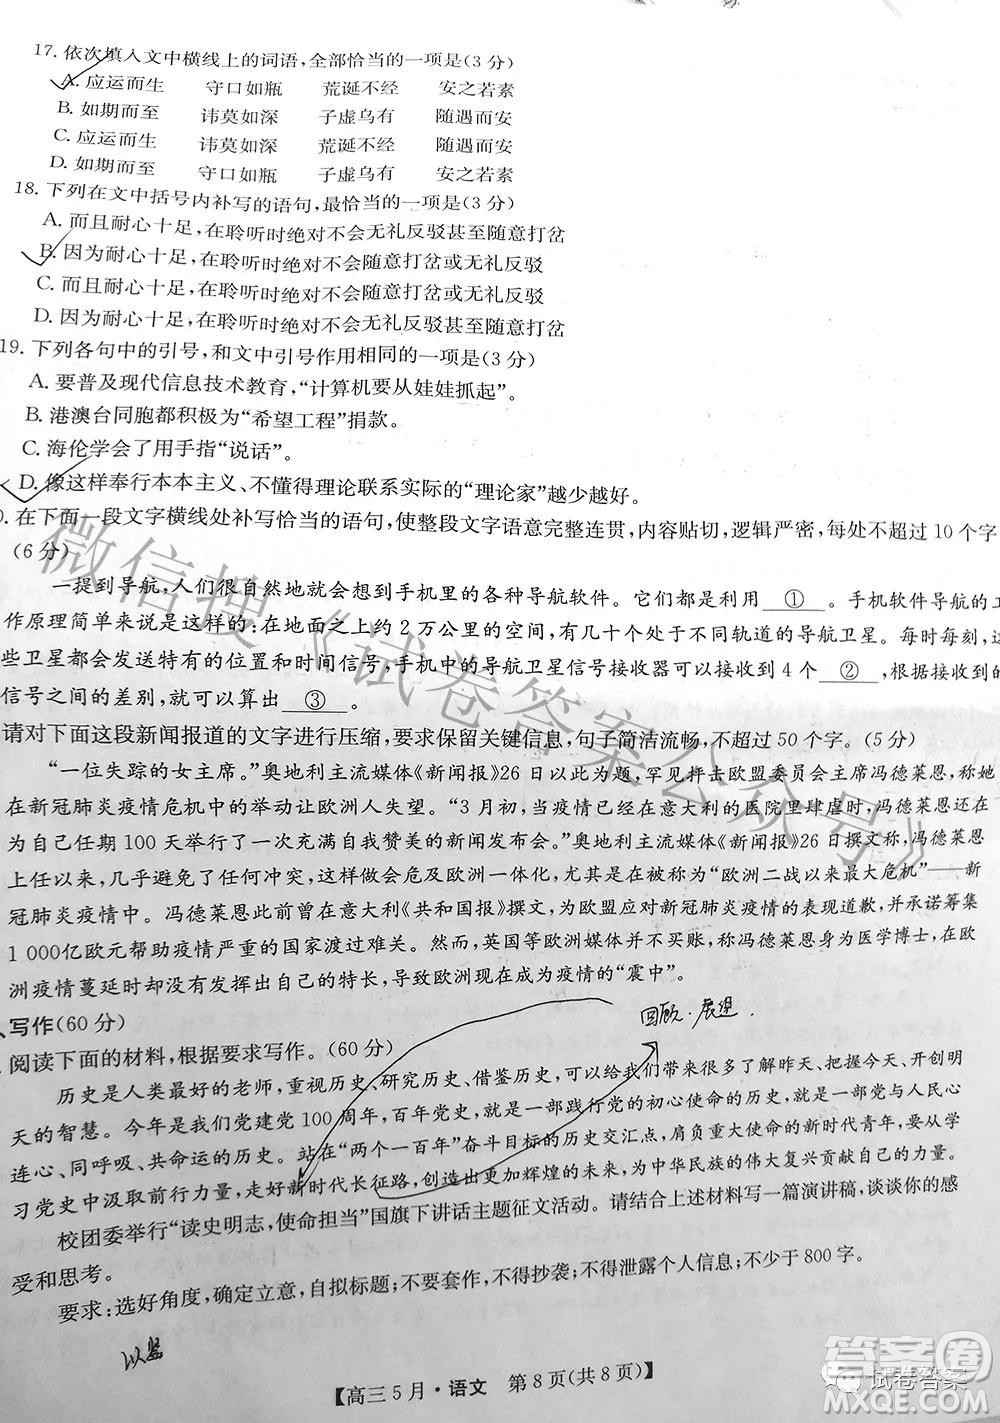 17. 依次填入文中横线上的词语,全部恰当的一项是(3分)
A. 应运而生 守口如瓶 荒诞不经 安之若素
B. 如期而至 讳莫如深 子虚乌有 随遇而安
C. 应运而生 讳莫如深 荒诞不经 随遇而安
D. 如期而至 守口如瓶 子虚乌有 安之若素
18. 下列在文中括号内补写的语句,最恰当的一项是(3分)
A. 而且耐心十足,在聆听时绝对不会无礼反驳甚至随意打岔
B. 因为耐心十足,在聆听时绝对不会随意打岔或无礼反驳
C. 而且耐心十足,在聆听时绝对不会随意打岔或无礼反驳
D. 因为耐心十足,在聆听时绝对不会无礼反驳甚至随意打岔
19. 下列各句中的引号,和文中引号作用相同的一项是(3分)
A. 要普及现代信息技术教育,“计算机要从娃娃抓起”。
B. 港澳台同胞都积极为“希望工程”捐款。
C. 海伦学会了用手指“说话”。
D. 像这样奉行本本主义、不懂得理论联系实际的“理论家”越少越好。
0. 在下面一段文字横线处补写恰当的语句,使整段文字语意完整连贯,内容贴切,逻辑严密,每处不超过10个字
(6分)
一提到导航,人们很自然地就会想到手机里的各种导航软件。它们都是利用 ① 。手机软件导航的工
作原理简单来说是这样的:在地面之上约2万公里的空间,有几十个处于不同轨道的导航卫星。每时每刻,这
些卫星都会发送特有的位置和时间信号,手机中的导航卫星信号接收器可以接收到4个 ② ,根据接收到的
信号之间的差别,就可以算出 ③ 。
请对下面这段新闻报道的文字进行压缩,要求保留关键信息,句子简洁流畅,不超过50个字。(5分)
“一位失踪的女主席。”奥地利主流媒体《新闻报》26日以此为题,罕见抨击欧盟委员会主席冯德莱恩,称她
在新冠肺炎疫情危机中的举动让欧洲人失望。“3月初,当疫情已经在意大利的医院里肆虐时,冯德莱恩还在
为自己上任100天举行了一次充满自我赞美的新闻发布会。”奥地利主流媒体《新闻报》26日撰文称,冯德莱恩
上任以来,几乎避免了任何冲突,这样做会危及欧洲一体化,尤其是在被称为“欧洲二战以来最大危机”——新
冠肺炎疫情中。冯德莱恩此前曾在意大利《共和国报》撰文,为欧盟应对新冠肺炎疫情的表现道歉,并承诺筹集
1 000亿欧元帮助疫情严重的国家渡过难关。然而,英国等欧洲媒体并不买账,称冯德莱恩身为医学博士,在欧
洲疫情蔓延时却没有发挥自己的特长,导致欧洲现在成为疫情的“震中”。
、写作(60分)
阅读下面的材料,根据要求写作。(60分)
回顾·展望.
历史是人类最好的老师,重视历史、研究历史、借鉴历史,可以给我们带来很多了解昨天、把握今天、开创明
天的智慧。今年是我们党建党100周年,百年党史,就是一部践行党的初心使命的历史,就是一部党与人民心
连心、同呼吸、共命运的历史。站在“两个一百年”奋斗目标的历史交汇点,肩负重大使命的新时代青年,要从学
习党史中汲取前行力量,走好新时代长征路,创造出更加辉煌的未来,为中华民族的伟大复兴贡献自己的力量。
校团委举行“读史明志,使命担当”国旗下讲话主题征文活动。请结合上述材料写一篇演讲稿,谈谈你的感
受和思考。
要求:选好角度,确定立意,自拟标题;不要套作,不得抄袭;不得泄露个人信息;不少于800字。
【高三5月·语文 第8页(共8页)】
微信搜《试卷答案公众号》
试卷答案
答案圈
MXQE.COM